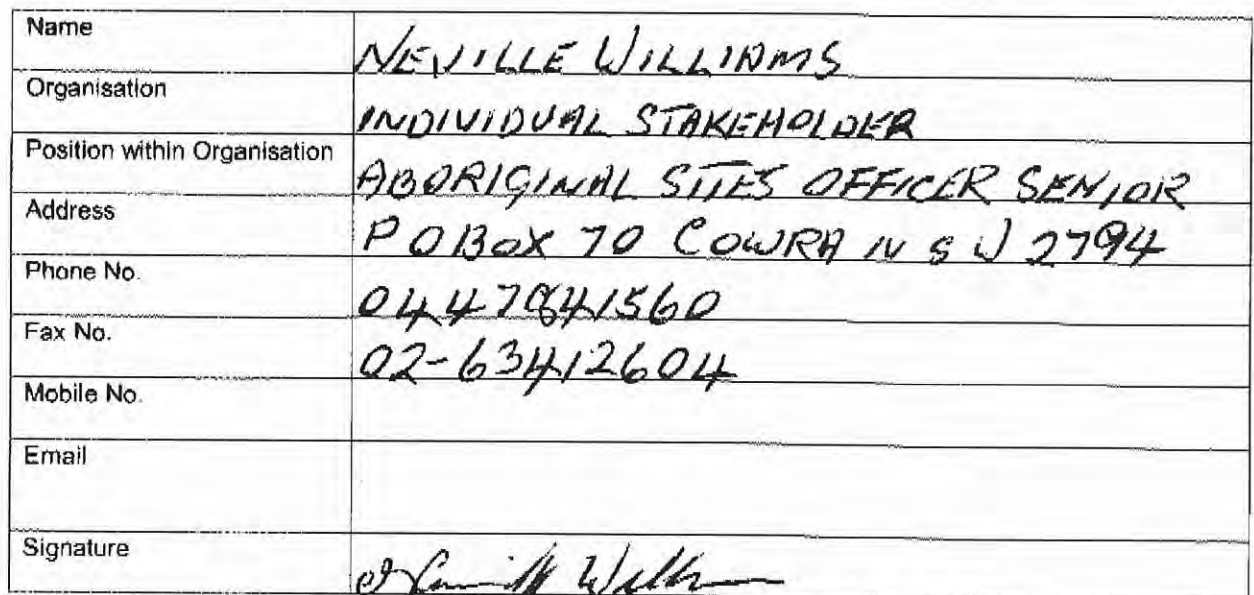 Name NEVILLE WILLIAMS
Organisation INDIVIDUAL STAKEHOLDER
Position within Organisation ABORIGINAL SITES OFFICER SENIOR
Address P O BOX 70 COWRA N S W 2794
Phone No. 0447841560
Fax No. 02-63412604
Mobile No.
Email
Signature